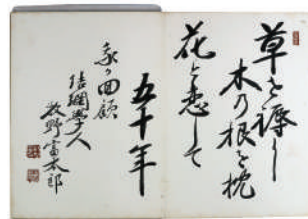 草を褥に
木乃根を枕
花と恋して
五十年
我が回顧
結網學人
牧野富太郎